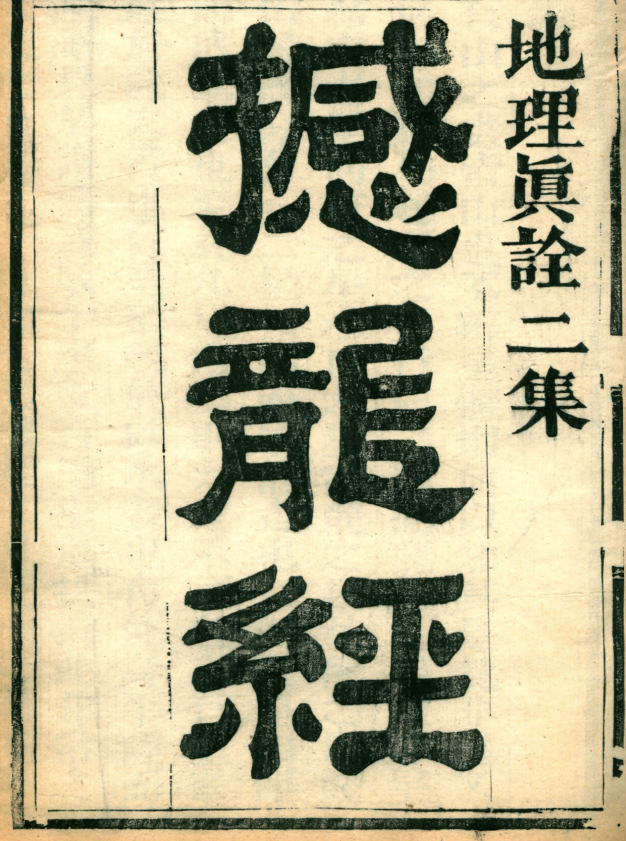 地理眞詮二集
撼龍經